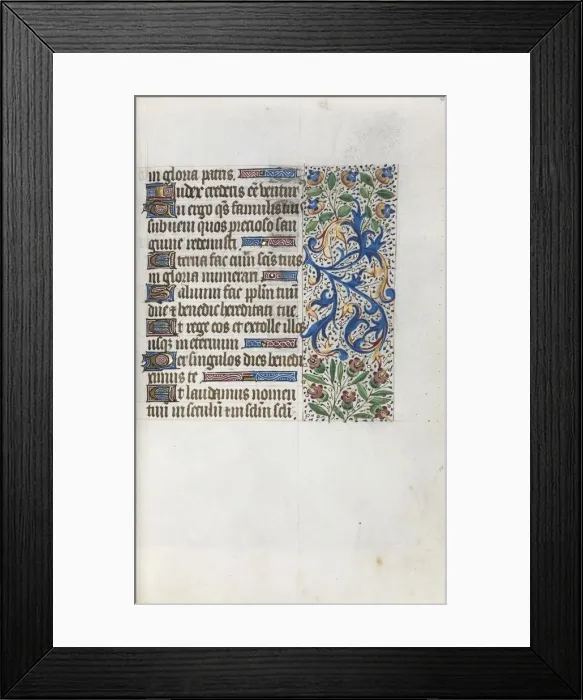 in gloria patris
Iudex crederis eẽ ventur
Tu ergo qs̃ famulis tui
subueni quos precioso san
guine redemisti
Eterna fac cum scĩs tuis
in gloria numerari
Saluum fac pplm̃ tuũ
dñe ⁊ benedic hereditati tue
Et rege eos et extolle illos
usqz in eternum
Per singulos dies benedi
cimus te
Et laudamus nomen
tuũ in seculũ ⁊ in sclm̃ scli